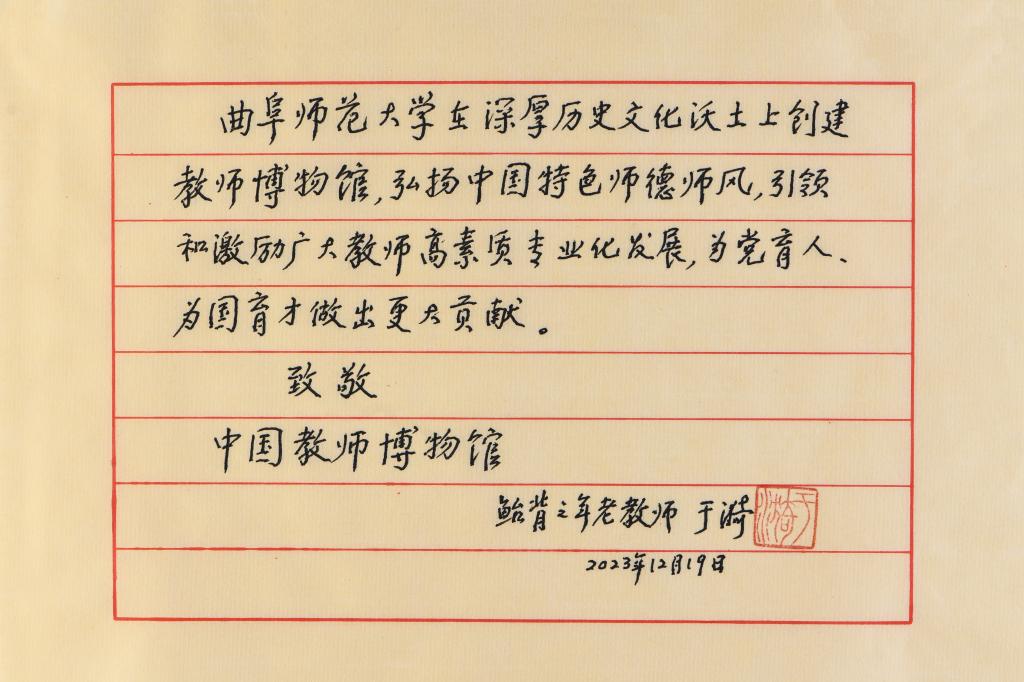 曲阜师范大学在深厚历史文化沃土上创建
教师博物馆,弘扬中国特色师德师风,引领
和激励广大教师高素质专业化发展,为党育人、
为国育才做出更大贡献。
致敬
中国教师博物馆
鲐背之年老教师 于漪
于漪
2023年12月19日